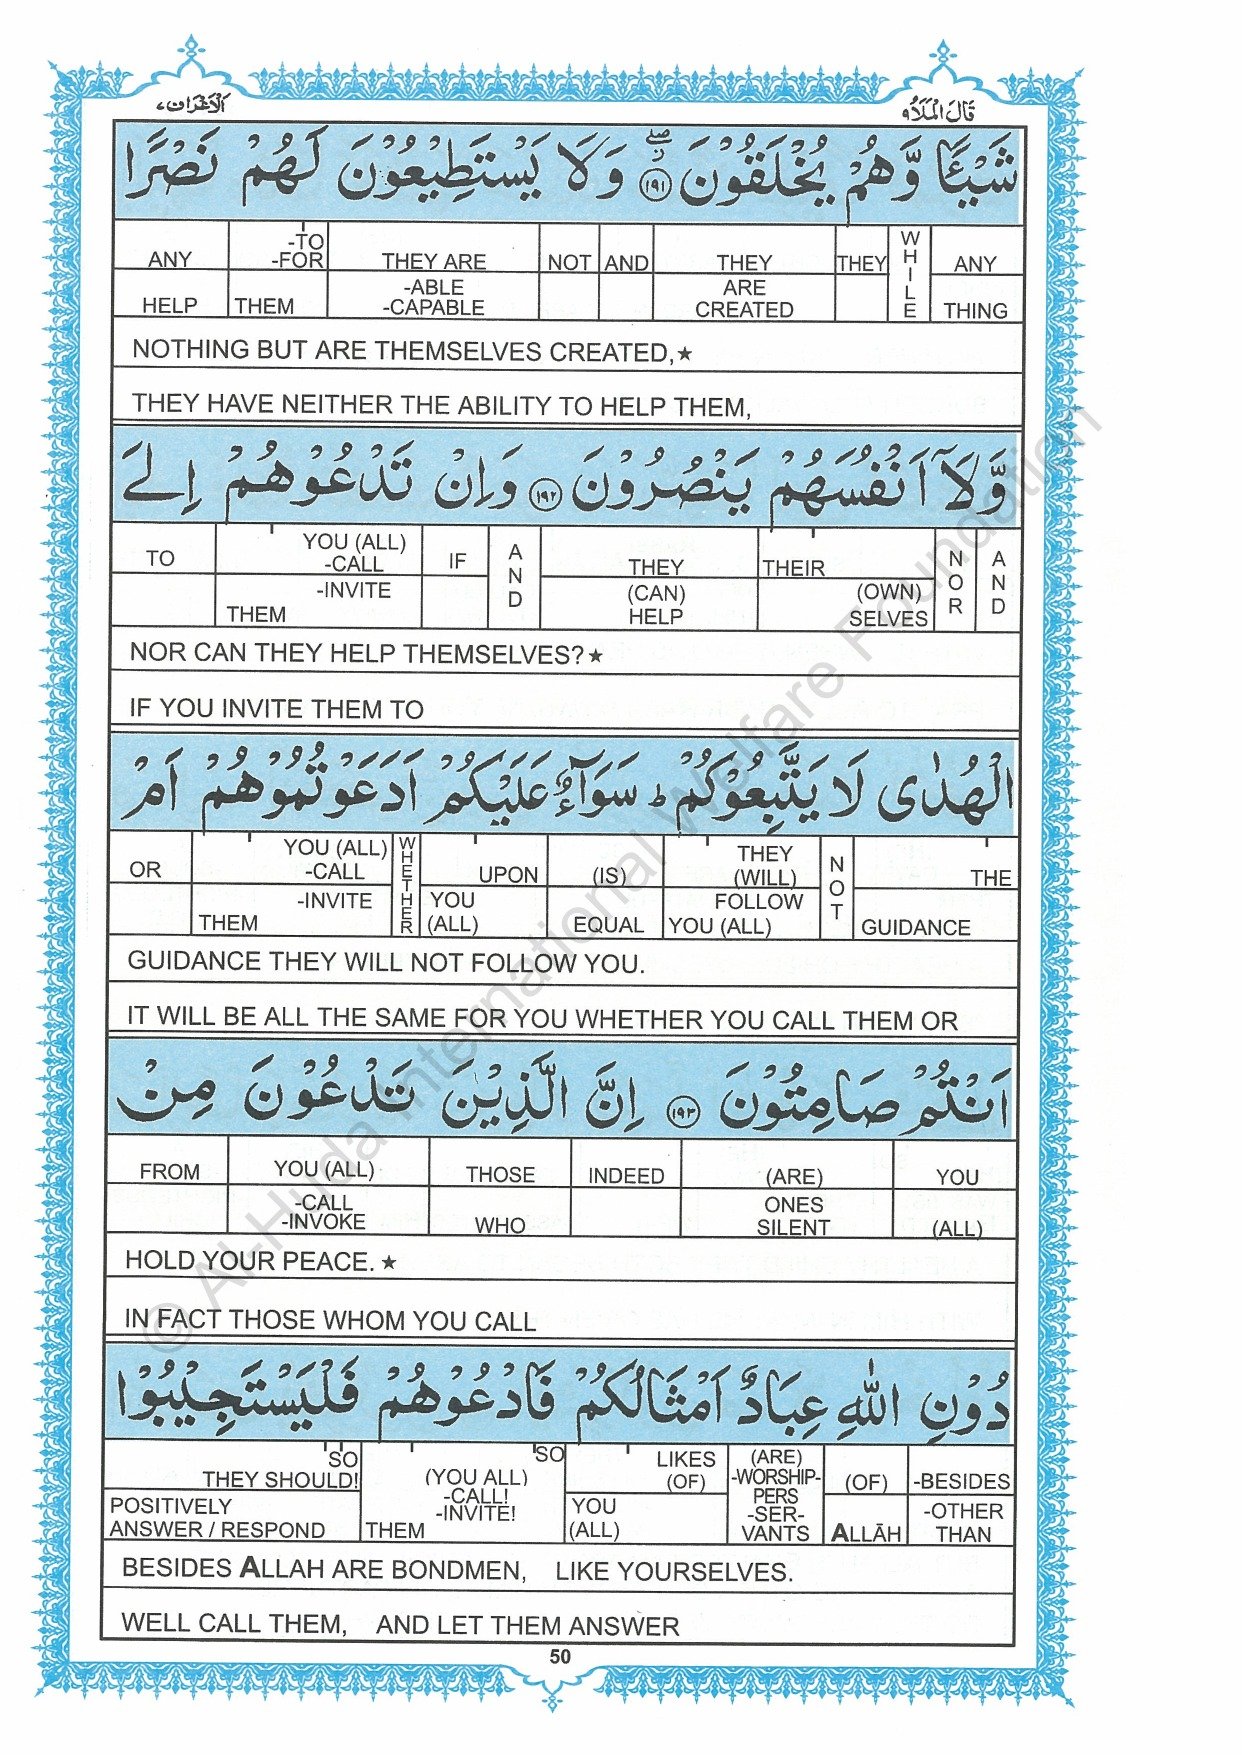 الاعراف ٧
قال الملا ٩
شَيْـًٔا وَّهُمْ يُخْلَقُوْنَ ۝١٩١ وَلَا يَسْتَطِيْعُوْنَ لَهُمْ نَصْرًا
ANY -TO -FOR THEY ARE NOT AND THEY THEY WHILE ANY
HELP THEM -ABLE -CAPABLE ARE CREATED THING
NOTHING BUT ARE THEMSELVES CREATED,★
THEY HAVE NEITHER THE ABILITY TO HELP THEM,
وَّلَآ اَنْفُسَهُمْ يَنْصُرُوْنَ ۝١٩٢ وَاِنْ تَدْعُوْهُمْ اِلَى
TO YOU (ALL) -CALL IF AND THEY THEIR NOR AND
-INVITE THEM (CAN) HELP (OWN) SELVES
NOR CAN THEY HELP THEMSELVES?★
IF YOU INVITE THEM TO
الْهُدٰى لَا يَتَّبِعُوْكُمْ ؕ سَوَآءٌ عَلَيْكُمْ اَدَعَوْتُمُوْهُمْ اَمْ
OR YOU (ALL) -CALL WHETHER UPON (IS) THEY (WILL) NOT THE
-INVITE THEM YOU (ALL) EQUAL FOLLOW YOU (ALL) GUIDANCE
GUIDANCE THEY WILL NOT FOLLOW YOU.
IT WILL BE ALL THE SAME FOR YOU WHETHER YOU CALL THEM OR
اَنْتُمْ صَامِتُوْنَ ۝١٩٣ اِنَّ الَّذِيْنَ تَدْعُوْنَ مِنْ
FROM YOU (ALL) THOSE INDEED (ARE) YOU
-CALL -INVOKE WHO ONES SILENT (ALL)
HOLD YOUR PEACE.★
IN FACT THOSE WHOM YOU CALL
دُوْنِ اللّٰهِ عِبَادٌ اَمْثَالُكُمْ فَادْعُوْهُمْ فَلْيَسْتَجِيْبُوْا
SO THEY SHOULD! SO (YOU ALL) -CALL! -INVITE! LIKES (OF) (ARE) -WORSHIP- PERS -SER- VANTS (OF) -BESIDES
POSITIVELY ANSWER / RESPOND THEM YOU (ALL) ALLĀH -OTHER THAN
BESIDES ALLAH ARE BONDMEN, LIKE YOURSELVES.
WELL CALL THEM, AND LET THEM ANSWER
50
© Al-Huda International Welfare Foundation